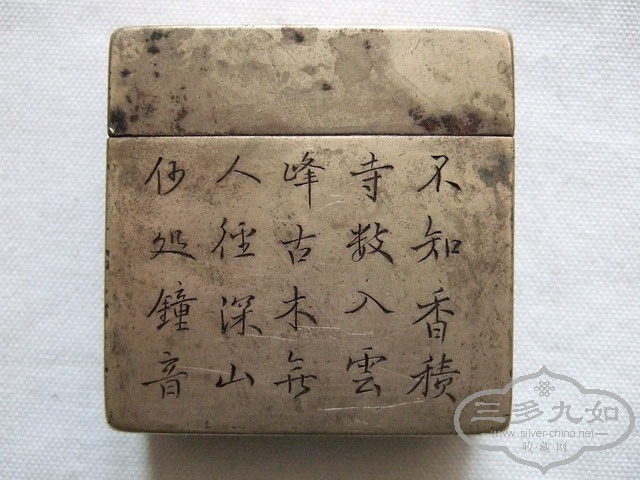 不知香積
寺数入雲
峰古木無
人徑深山
何処鐘音
三多九如
www.silver-china.net
收·藏·网